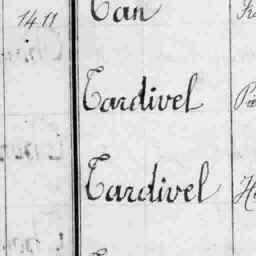 1411 Tan
Tardivel
Tardivel